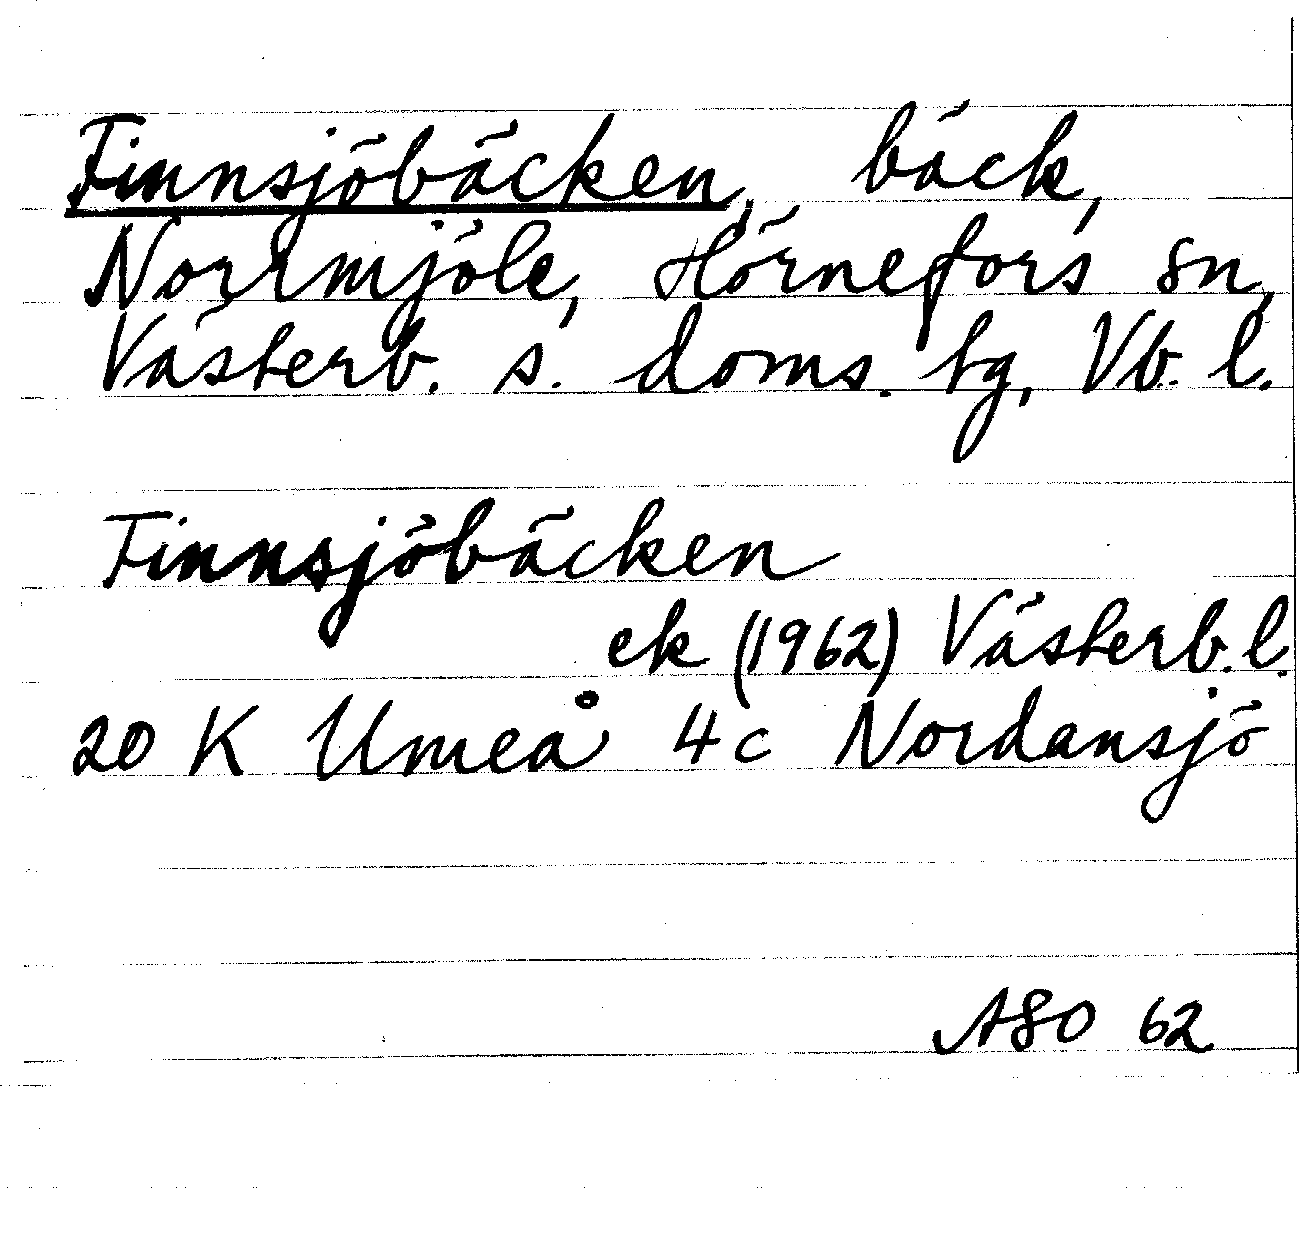 Finnsjöbäcken, bäck,
Norrmjöle, Hörnefors sn,
Västerb. s. doms. tg, Vb. l.
Finnsjöbäcken
ek (1962) Västerb. l.
20 K Umeå 4c Nordansjö
ASO 62